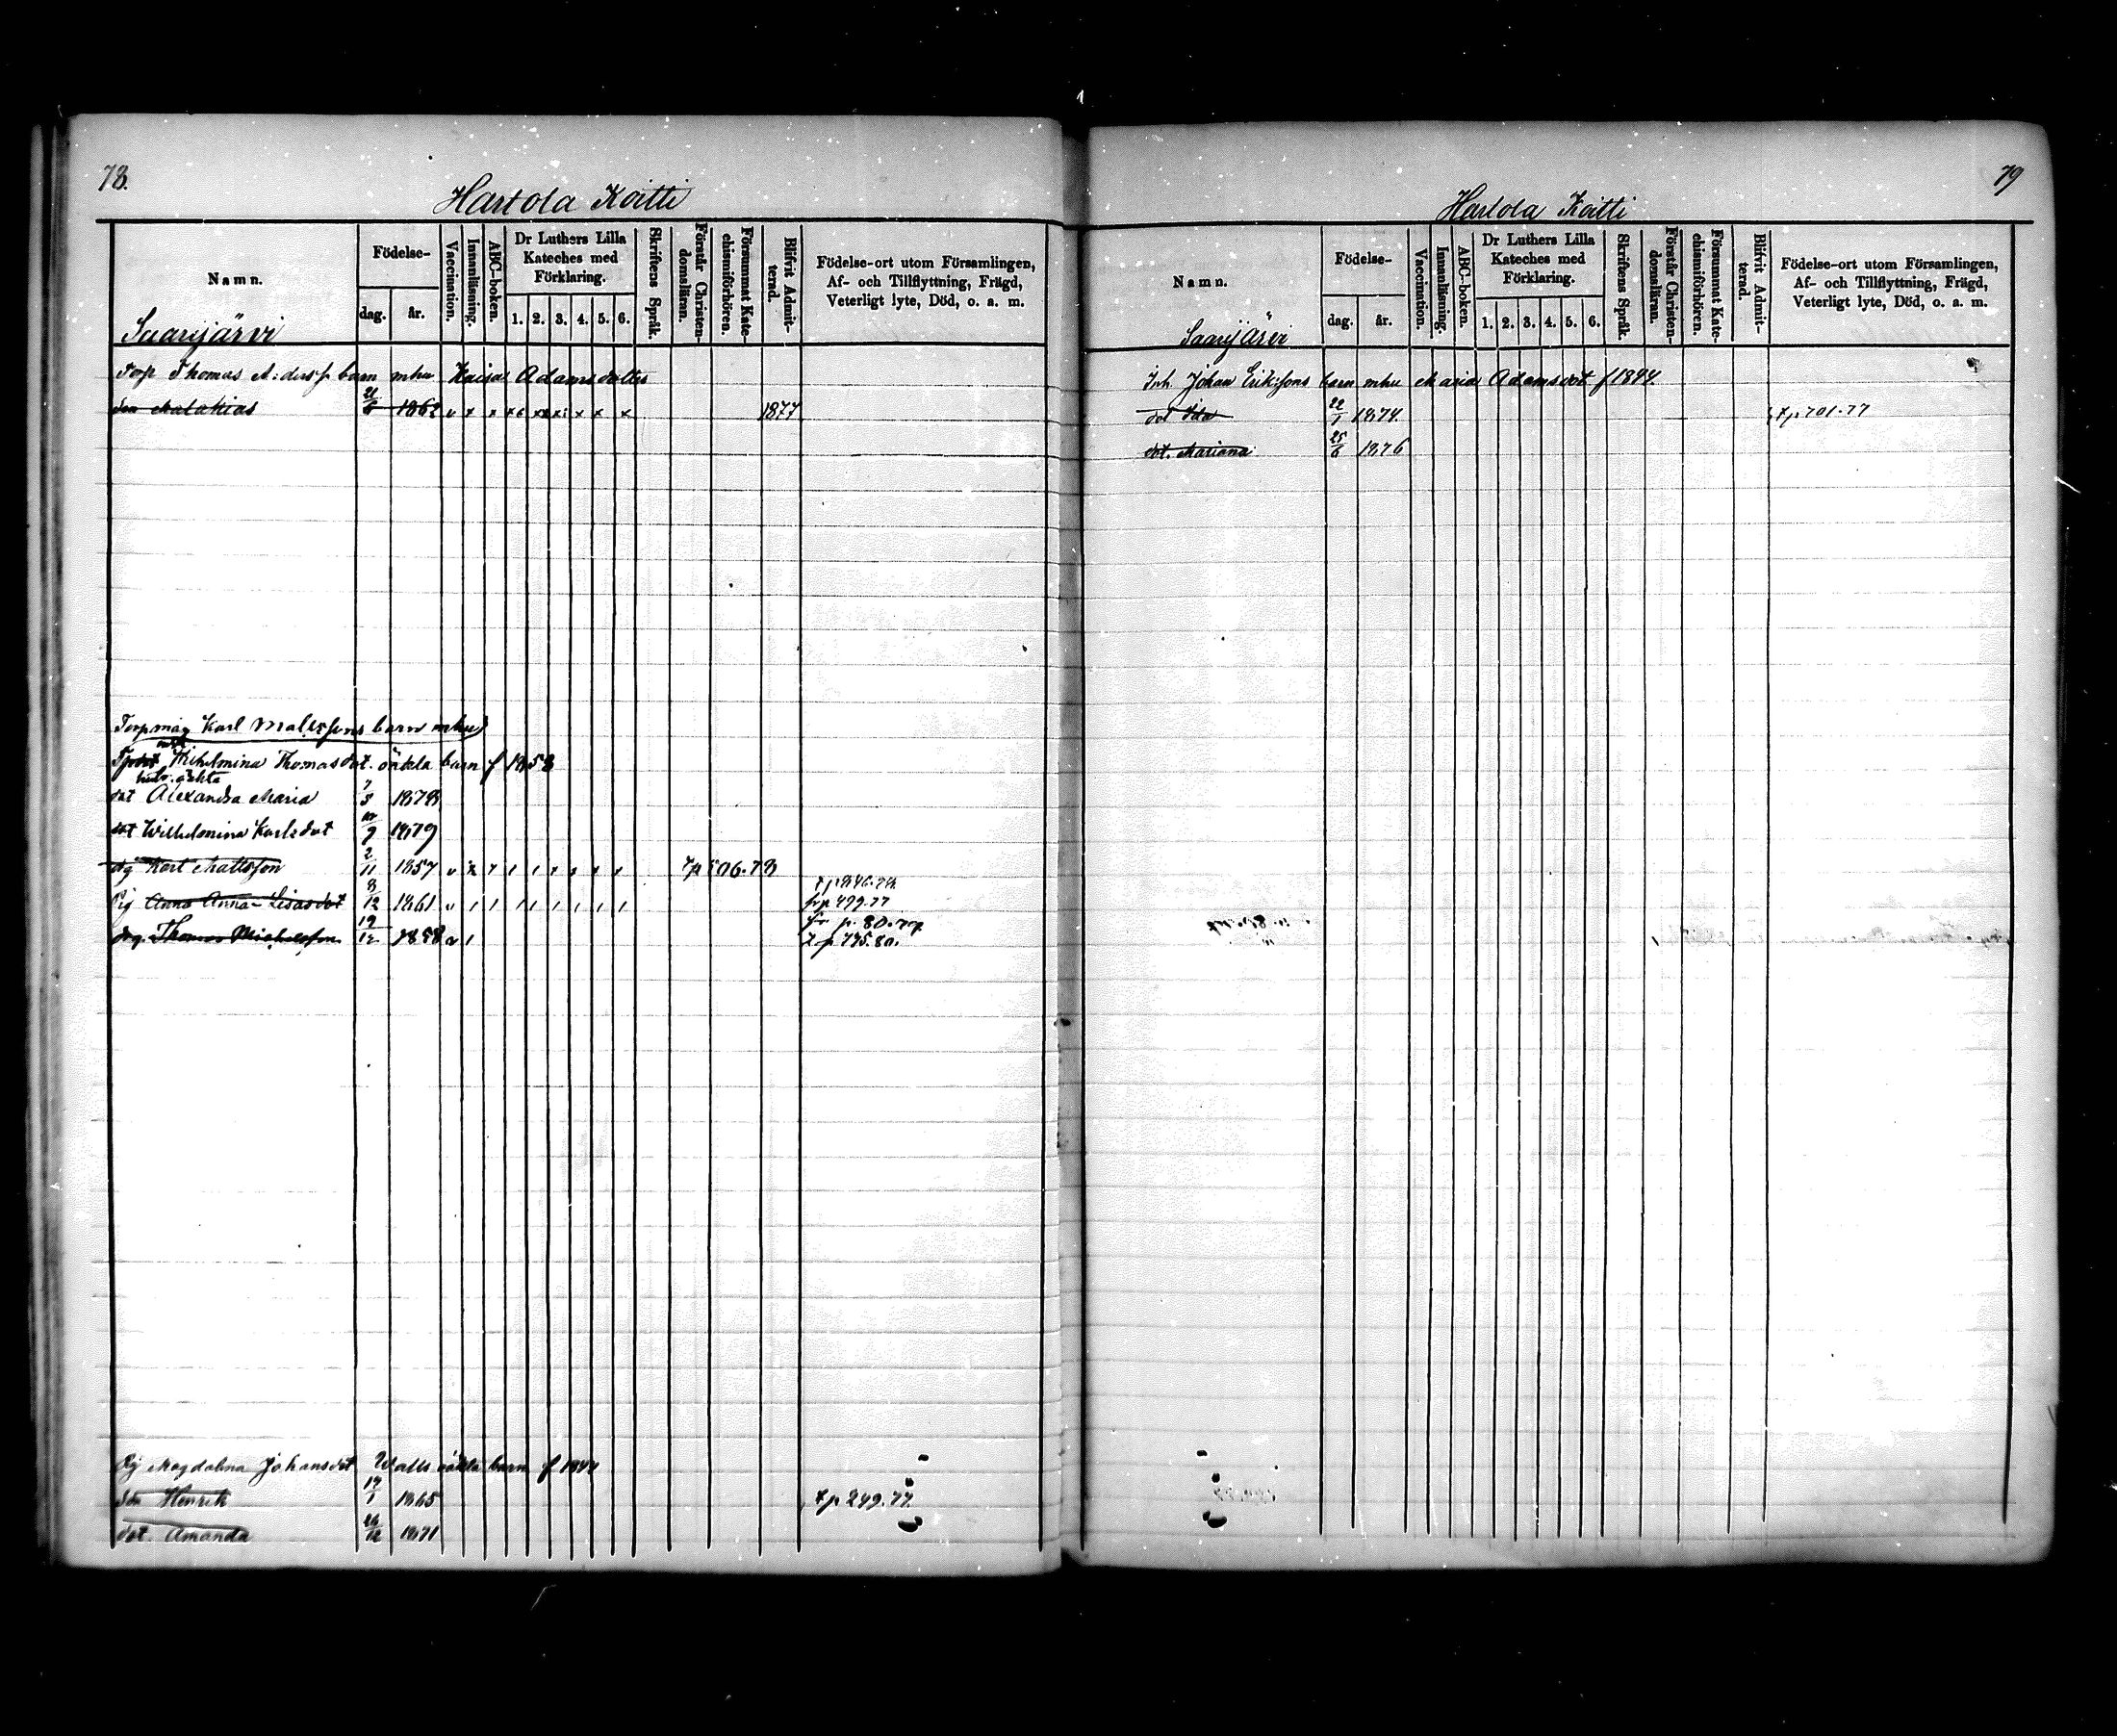 78.
Hartola Koitti
Namn.
Födelse-
dag. år.
Vaccination.
Innanläsning.
ABC-boken.
Dr Luthers Lilla Kateches med Förklaring.
1. 2. 3. 4. 5. 6.
Skriftens Språk.
Förstår Christendomsläran.
Försummat Katechismiförhören.
Blifvit Admitterad.
Födelse-ort utom Församlingen, Af- och Tillflyttning, Frägd, Veterligt lyte, Död, o. a. m.
Saarijärvi
Torp Thomas A:derss barn mhu Kaisa Adamsdotter
son Malakias 1862 v x x x x x x 1877
Torpmåg Karl Mattssons barn mhu
Wilhelmina Thomasdot. oäkta barn f 1858
dot Alexandra Maria 1878
dot Wilhelmina Karlsdot 9 1879
drg Karl Mattsson 2/11 1857 506.78
Pig Anna Anna-Lisasdot 8/12 1861 frp 499.77
drg. Thomas Michelsson 19/12 1858 v 1 t.p 775.80.
Pig Magdalena Johansdot Walls oäkta barn f 1844
son Henrik 1865 t.p 249.77.
dot. Amanda 26/12 1871
79
Hartola Koitti
Namn.
Födelse-
dag. år.
Vaccination.
Innanläsning.
ABC-boken.
Dr Luthers Lilla Kateches med Förklaring.
1. 2. 3. 4. 5. 6.
Skriftens Språk.
Förstår Christendomsläran.
Försummat Katechismiförhören.
Blifvit Admitterad.
Födelse-ort utom Församlingen, Af- och Tillflyttning, Frägd, Veterligt lyte, Död, o. a. m.
Saarijärvi
Inh. Johan Erikssons barn mhu Maria Adamsdot f 1844.
dot Ida 22/1 1874. t.p 701.77
dot. Mariana 25/6 1876